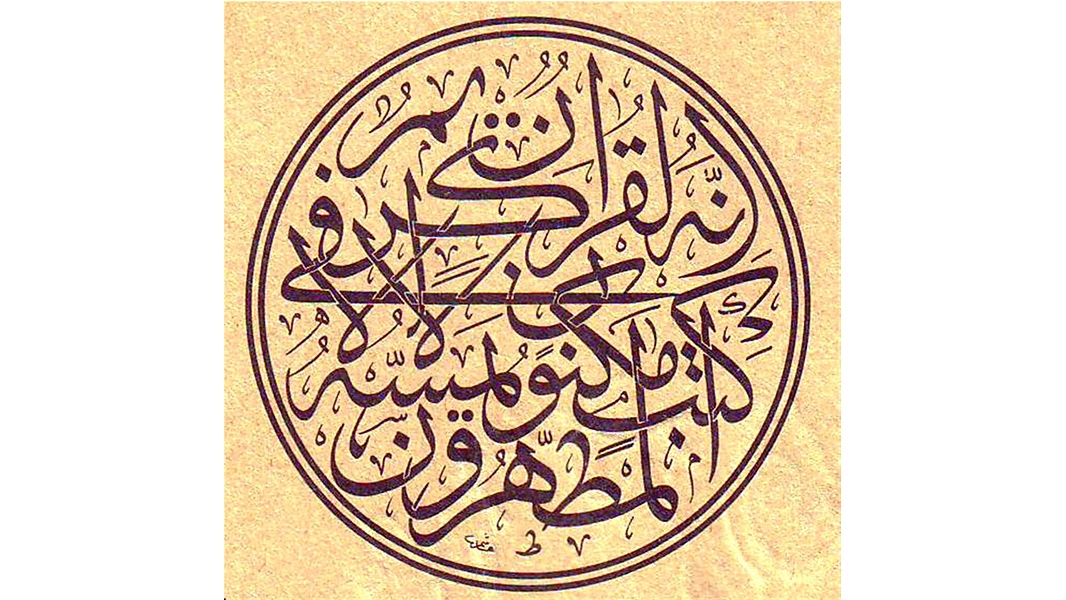 إنه لقرآن كريم
في كتب مكنون لا يمسه إلا
المطهرون